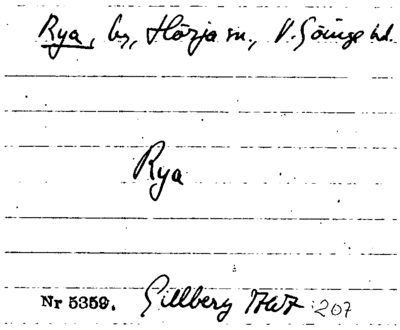 Rya, by, Hörja sn., V. Göinge hd.
Rya
Nr 5359. Gillberg 1767 : 207